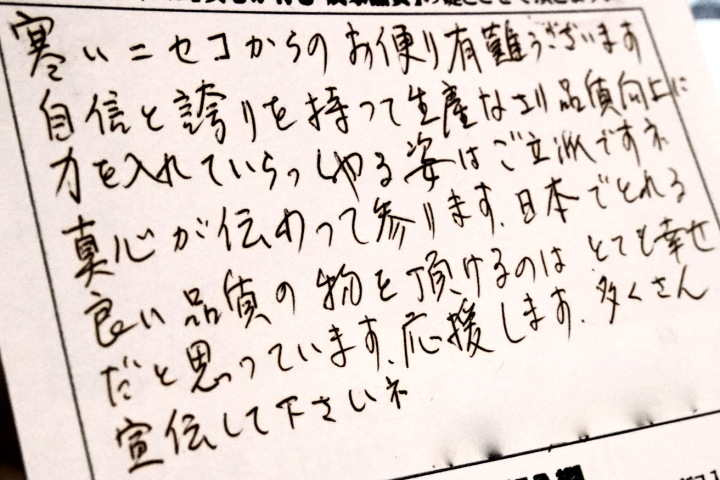 寒いニセコからのお便り有難うございます
自信と誇りを持って生産なさり品質向上に
力を入れていらっしゃる姿はご立派ですネ
真心が伝わって参ります、日本でとれる
良い品質の物を頂けるのは とても幸せ
だと思っています、応援します、多くさん
宣伝して下さいネ